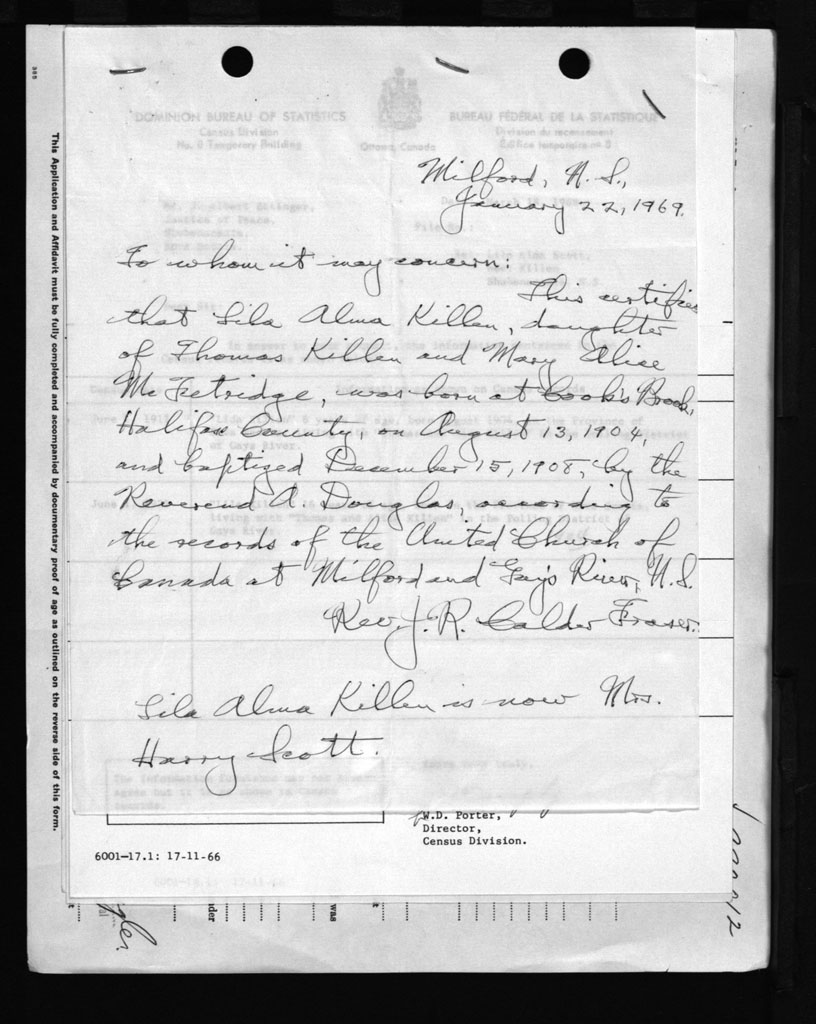 DOMINION BUREAU OF STATISTICS
Census Division
No. 8 Temporary Building
Ottawa, Canada
BUREAU FÉDÉRAL DE LA STATISTIQUE
Division du recensement
Édifice temporaire nº 8
Milford, N. S.,
January 22, 1969.
To whom it may concern:
This certifies
that Lila Alma Killen, daughter
of Thomas Killen and Mary Alice
McFetridge, was born at Cook's Brook,
Halifax County, on August 13, 1904,
and baptized December 15, 1908, by the
Reverend A. Douglas, according to
the records of the United Church of
Canada at Milford and Gay's River, N.S.
Rev. J. R. Calder Fraser.
Lila Alma Killen is now Mrs.
Harry Scott.
W.D. Porter,
Director,
Census Division.
6001-17.1: 17-11-66
This Application and Affidavit must be fully completed and accompanied by documentary proof of age as outlined on the reverse side of this form.
was